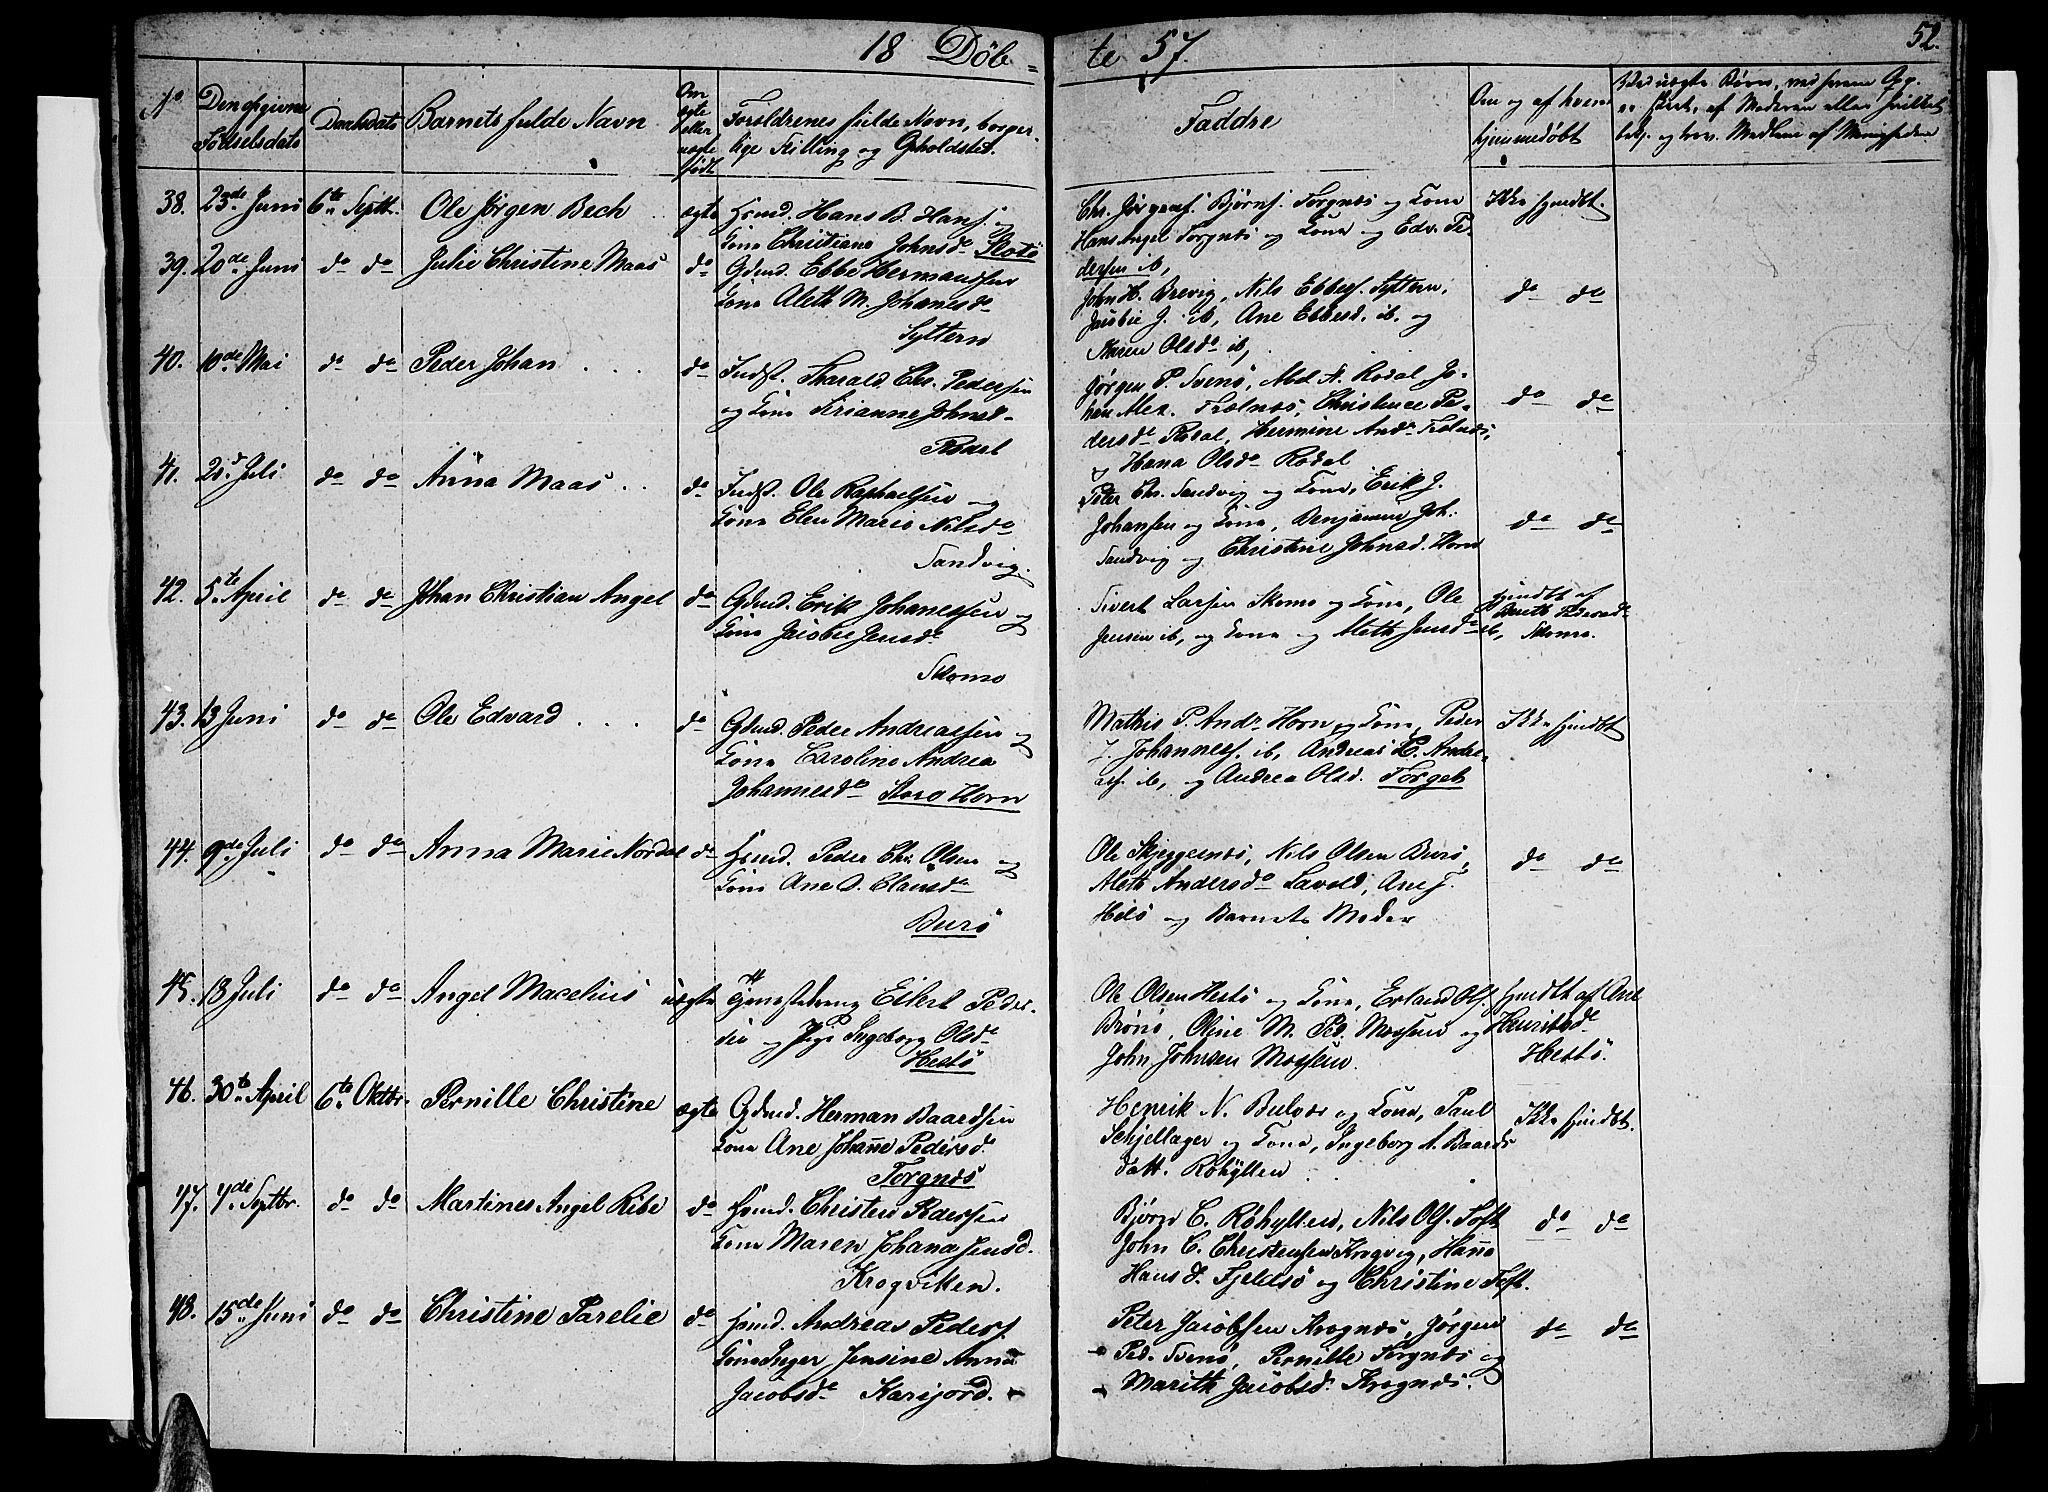 18 Døb= te 57. 52.
No Den opgivne Fødselsdato
Daabsdato
Barnets fulde Navn
Om ægte eller uægte født
Forældrenes fulde Navn, borgerlige Stilling og Opholdsted.
Faddre
Om og af hvem hjemmedøbt
38. 23de Juni 6te Septbr. Ole Jørgen Bech ægte Hsmd. Hans B. Hans. og
Kone Christiana Johnsd. Slotø
Chr. Jørgens. Bjørn. Torgnæs og Kone
Hans Angel Torgnæs og Kone og Edv. Pe
dersen ib,
Ikke hjmdbt.
39. 20de Juni do do Julie Christine Maas do Gdmd. Ebbe Hermansen
Kone Aleth M. Johanesd
Syttern
John H. Brevig, Nils Ebbes. Syttern,
Jacobie J. ib, Ane Ebbesd. ib. og
Karen Olsdr ib,
do do
40. 10de Mai do do Peder Johan do Indst. Harald Chr. Pedersen
og Kone Serianne Johnsd.
Rodal
Jørgen P. Svenø, Abel N. Rodal Jo-
han Alex. Trælnæs, Christence Pe-
dersd. Rodal, Hermine Andr Trælnæs,
og Hana Olsdr Rodal
do do
41. 21. Juli do do Anna Maas do Indst. Ole Raphaelsen og
Kone Elen Marie Nilsdr
Sandvig.
Peter Chr. Sandvig og Kone, Erik J.
Johansen og Kone, Benjamin Joh.
Sandvig og Christine Johnsd. Horn
do do
42. 5te April do do Johan Christian Angel do Gdmd. Erik Johanessen og
Kone Jacobie Jensdr
Skomo
Sivert Larsen Skomo og Kone, Ole
Jensen ib, og Kone og Aleth Jensdr ib,
hjmdbt af
Berith Pedersdr
Skomo.
43. 13 Juni do do Ole Edvard do Gdmd. Peder Andreassen og
Kone Caroline Andrea
Johannesdr Store Horn
Mathis P. Andr Horn og Kone, Peder
J. Johannes. ib, Andreas P. Andre-
as. ib, og Andrea Olsd. Torget
Ikke hjmdbt
44. 9de Juli do do Anna Marie Nordal do Hsmd. Peder Chr. Olsen og
Kone Ane O. Clausdr
Burø
Ole Skjeggesnæs, Nils Olsen Burø,
Aleth Andersdr Savold, Ane J.
Hilø og Barnets Moder
do do
45. 18 Juli do do Angel Macelius uægte Tjenestedreng Eilert Peder-
sen og Pige Ingeborg Olsdr
Hestø
Ole Olsen Hestø og Kone, Erland Ols.
Brønø, Oline M. Ped. Mossem og
John Johnsen Mossem.
hjmdbt af Ane
Henriksdr
Hestø.
46. 30te April 6te Oktbr. Pernille Christine ægte Gdmd. Herman Baardsen
Kone Ane Johanne Pedersd.
Torgnæs
Henrik N. Bulvær og Kone, Paul
Schjellager og Kone, Ingeborg A. Baards
datt. Røhyllen
Ikke hjmdbt.
47. 4de Septbr. do do Martines Angel Ribe do Hsmd. Christen Pedersen
Kone Maren Johana Jensd.
Krogviken.
Bjørn C. Røhyllen, Nils Ols. Toft
John C. Christensen Krogvig, Hanna
Hansd. Fjeldsø og Christine Toft.
do do
48. 15de Juni do do Christine Parelie do Hsmd. Andreas Peders.
Kone Inger Jensine Anna
Jacobsdr Karijord.
Peter Jacobsen Krognæs, Jørgen
Ped. Svenø, Pernille Torgnæs og
Marith Jacobsd. Krognæs.
do do